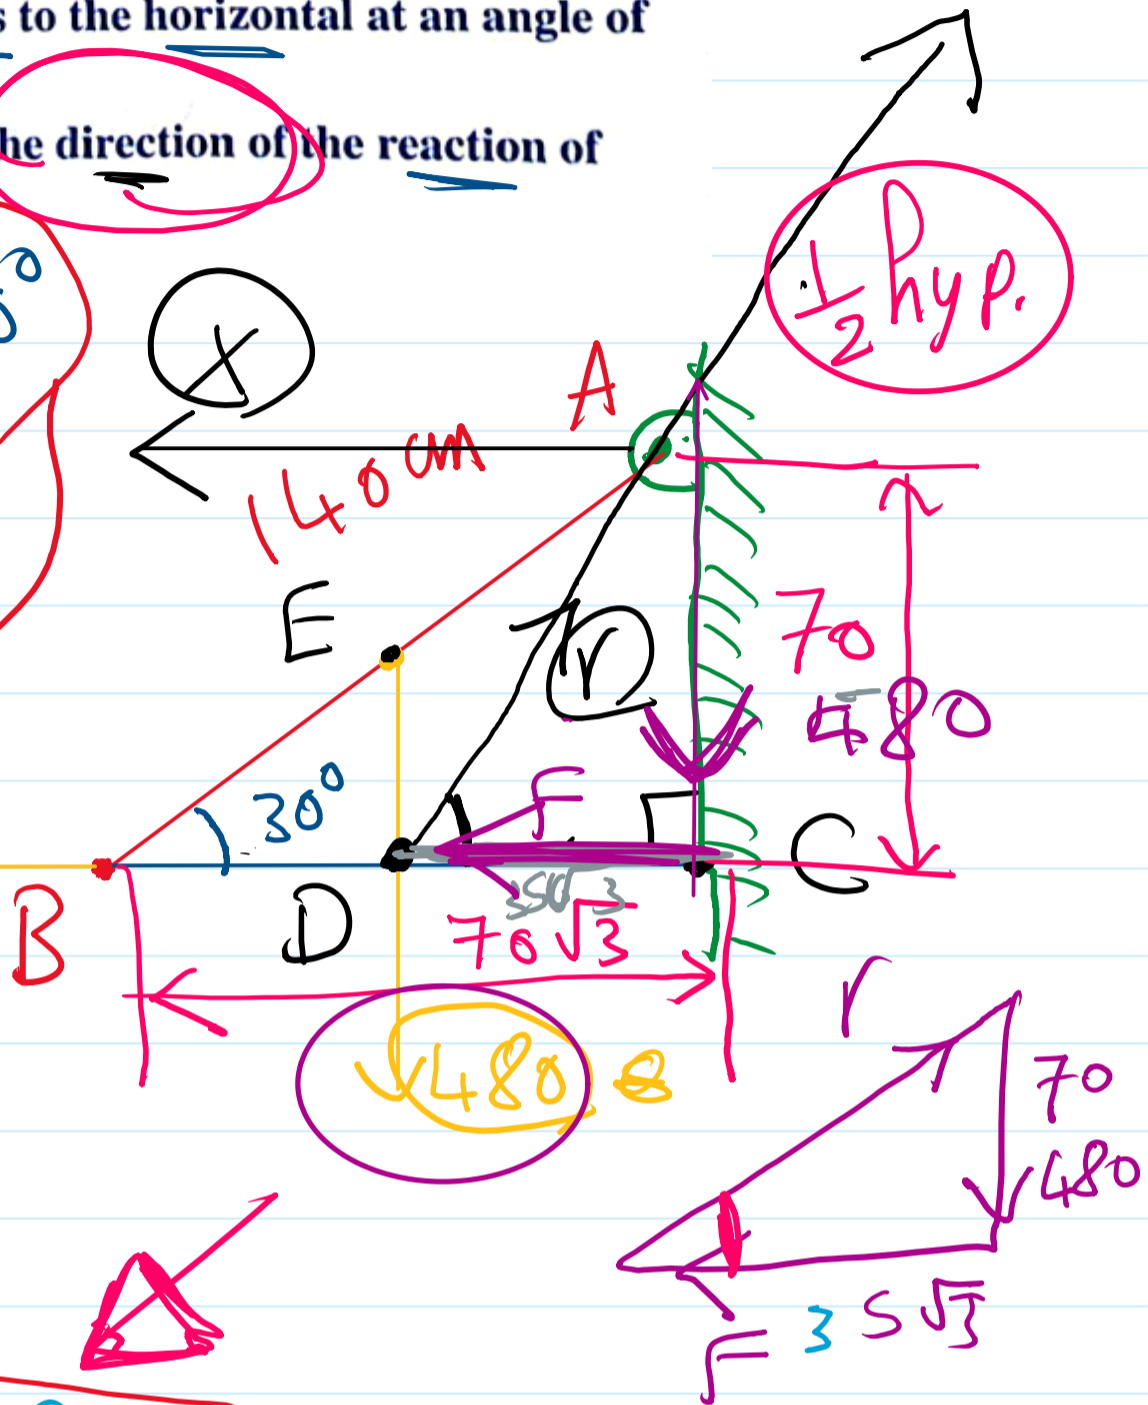 to the horizontal at an angle of
he direction of the reaction of
1/2 hyp.
X
A
140 cm
E
r
70
480
30°
F
C
B
D
35√3
70√3
480
r
70
480
F 35√3